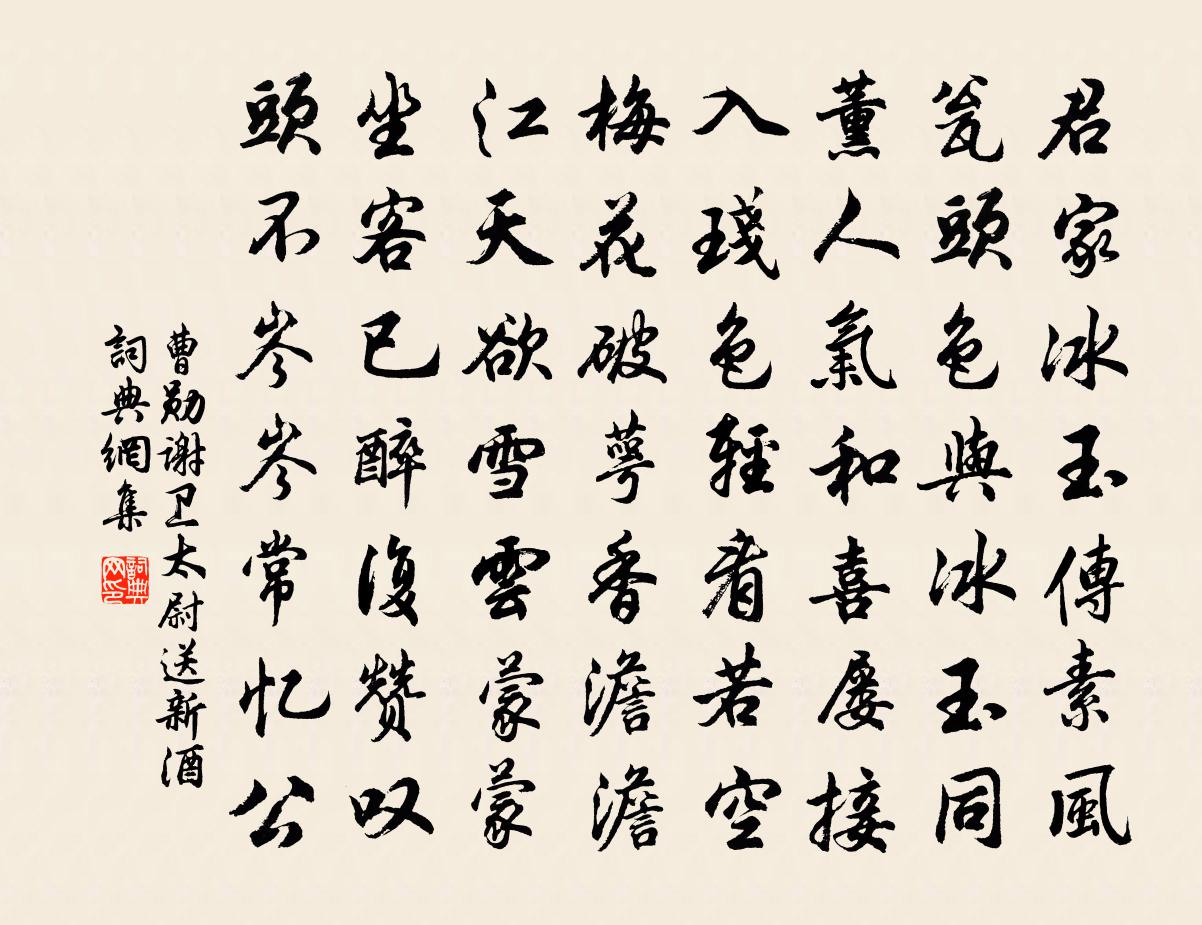 君家冰玉傳素風
瓮頭色與冰玉同
薰人氣和喜屡接
入琖色輕看若空
梅花破萼香澹澹
江天欲雪雲蒙蒙
坐客已醉復赞叹
頭不岑岑常忆公
曹勋谢卫太尉送新酒
詞典網集
詞典网印